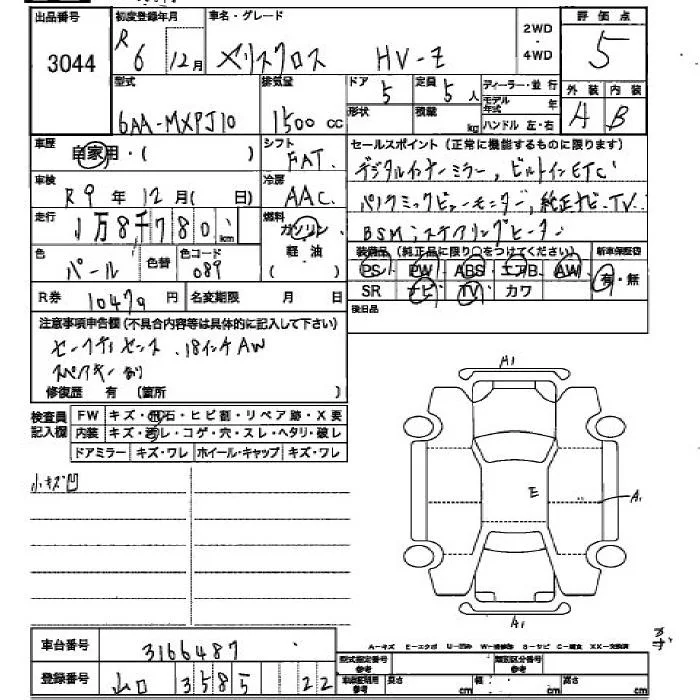 出品番号 初度登録年月 車名・グレード 2WD・4WD 評価点
3044 R6 12月 ヤリスクロス HV-Z 5
型式 排気量 ドア 5 定員 5人 ディーラー・並行 外装 内装
6AA-MXPJ10 1500 cc 形状 積載 kg モデル年式 年 ハンドル 左・右 A B
車歴 自家用・( ) シフト FAT セールスポイント(正常に機能するものに限ります)
車検 R9年12月( 日) 冷房 AAC デジタルインナーミラー, ビルトインETC
走行 1万8千780 km 燃料 ガソリン 軽油 ( ) パノラミックビューモニター, 純正ナビ.TV
BSM, ステアリングヒーター
色 パール 色替 色コード 089 装備品(純正品に限り○をつけてください) 新車保証書
PS PW ABS エアB AW 有・無
R券 10470 円 名変期限 月 日 SR ナビ TV カワ
後日品
注意事項申告欄(不具合内容等は具体的に記入して下さい)
セーフティセンス .18インチAW
スペアキー有り
修復歴 有 (箇所 )
検査員記入欄 FW キズ・飛石・ヒビ割・リペア跡・X要
内装 キズ・汚レ・コゲ・穴・スレ・ヘタリ・破レ
ドアミラー キズ・ワレ ホイール・キャップ キズ・ワレ
小キズ凹
A1
E
A1
A1
A-キズ E-エクボ U-凹み W-補修跡 S-サビ C-腐食 XX-交換済
車台番号 3166487
型式指定番号 参考 類別区分番号 参考
登録番号 山口 3585 22
車庫証明用 参考 長さ cm 幅 cm 高さ cm